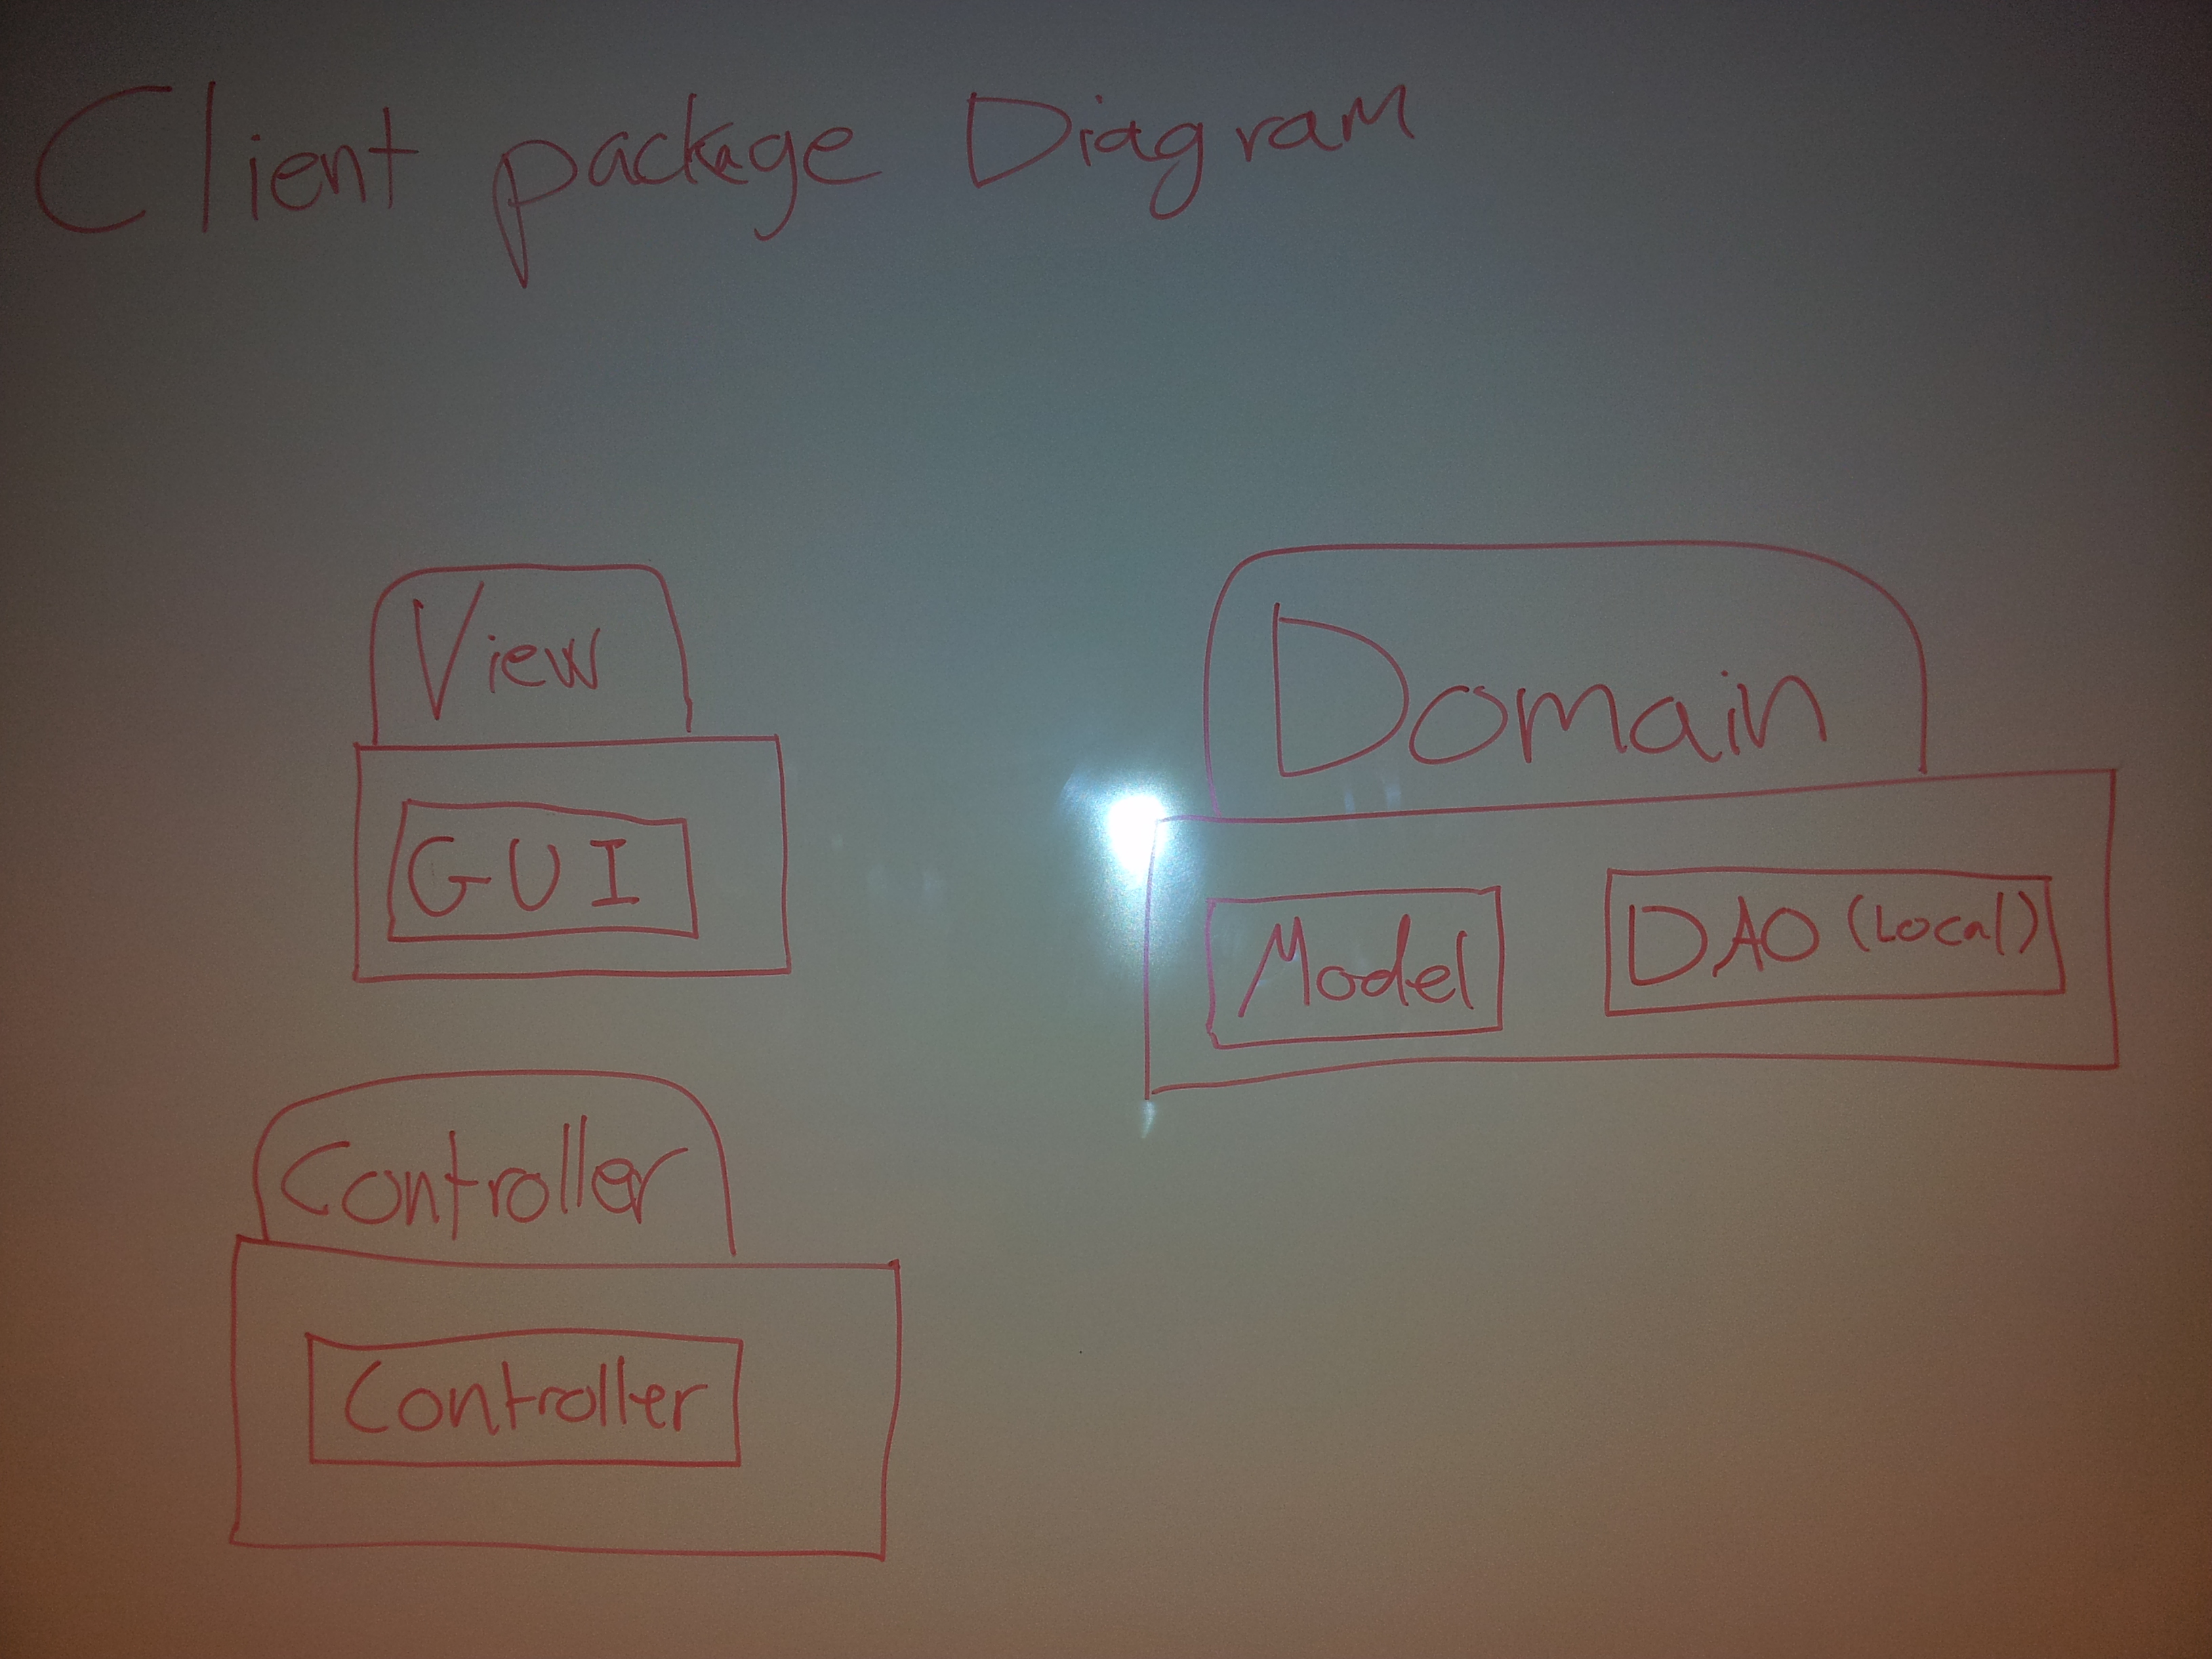 Client package Diagram
View
GUI
Domain
Model
DAO (Local)
Controller
Controller